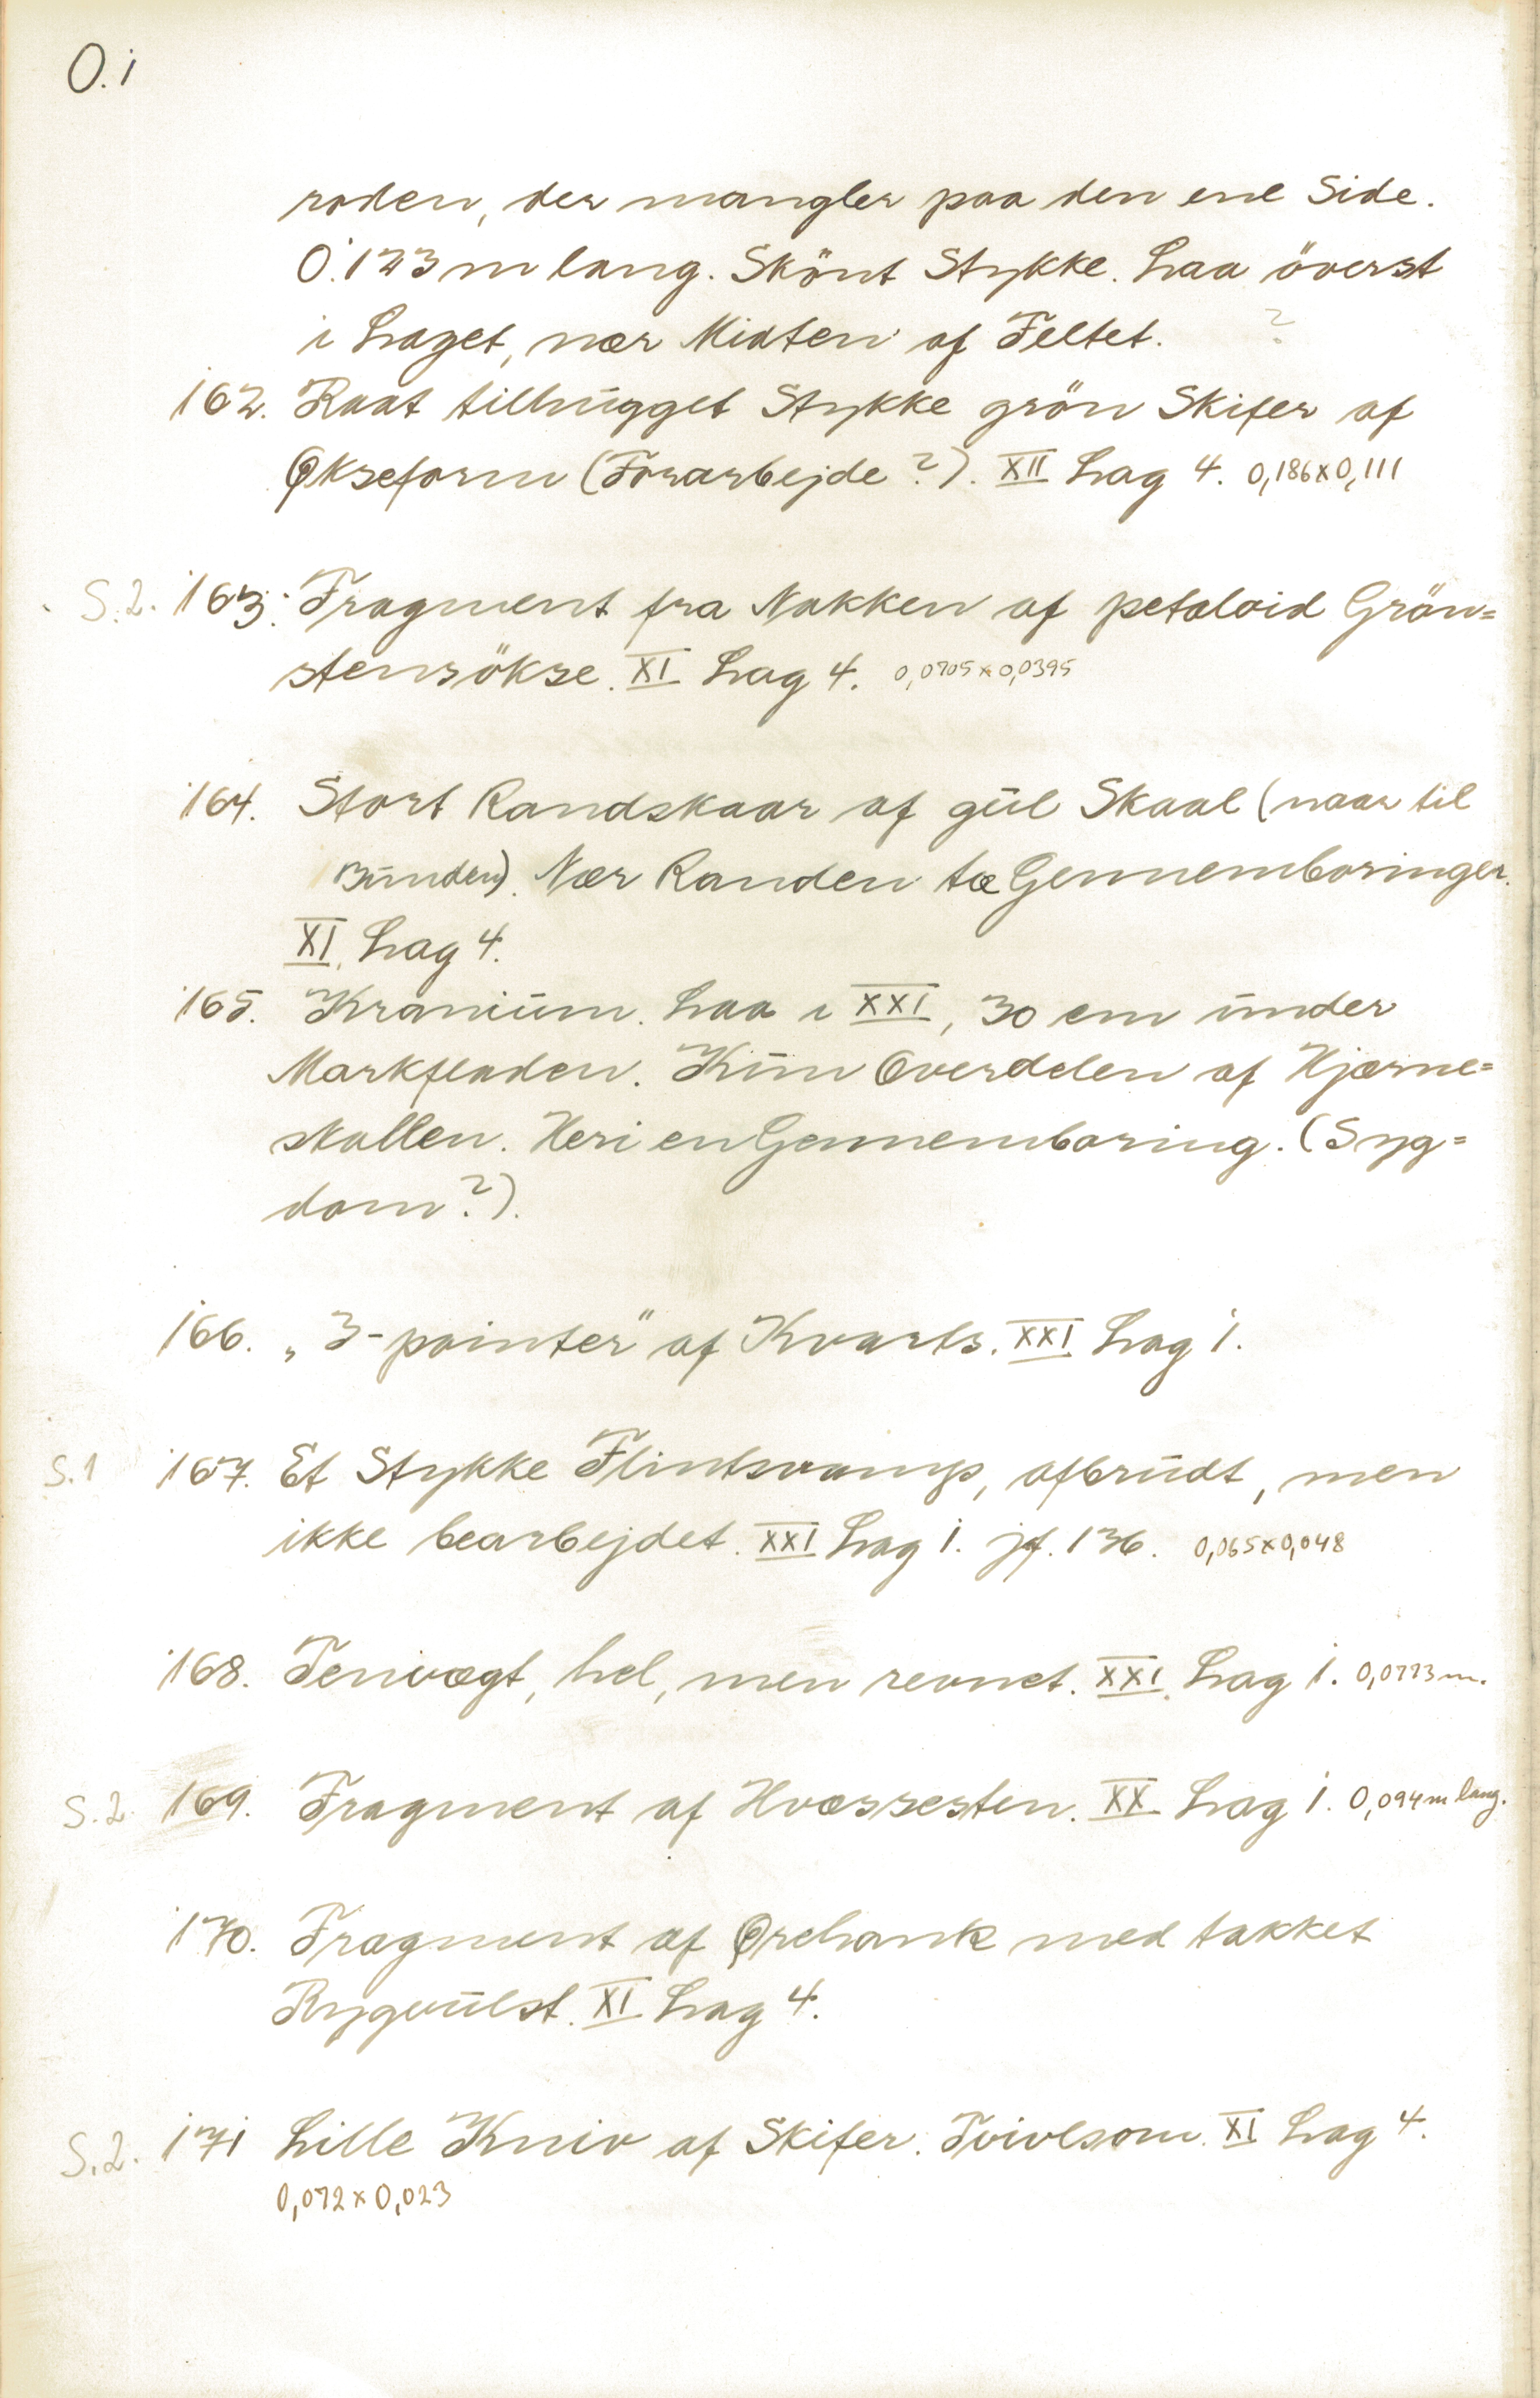 O.1
roden, der mangler paa den ene Side.
0.123 m lang. Skönt Stykke. Laa överst
i Laget, nær Midten af Feltet. ?
162. Raat tilhugget Stykke grön Skifer af
Økseform (Forarbejde?). XII Lag 4. 0,186x0,111
S.2. 163. Fragment fra Nakken af petaloid Grön=
stensökse. XI Lag 4. 0,0705x0,0395
164. Stort Randskaar af gul Skaal (naar til
Bunden). Nær Randen to Gennemboringer.
XI Lag 4.
165. Kranium. Laa i XXI, 30 cm under
Markfladen. Kun Overdelen af Hjærne=
skallen. Heri en Gennemboring. (Syg=
dom?).
166. „3-pointer" af Kvarts. XXI Lag 1.
S.1 167. Et Stykke Flintsvamp, afbrudt, men
ikke bearbejdet. XXI Lag 1. jf. 136. 0,065x0,048
168. Tenvægt, hel, men revnet. XXI Lag 1. 0,0773 m.
S.2 169. Fragment af Hvæssesten. XX Lag 1. 0,094 m lang.
170. Fragment af Ørehank med takket
Rygvulst. XI Lag 4.
S.2. 171 Lille Kniv af Skifer. Tvivlsom. XI Lag 4.
0,072x0,023